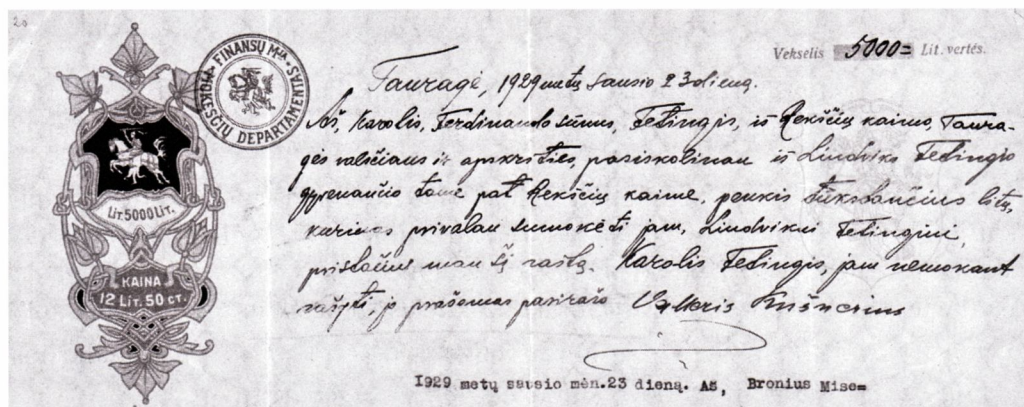 20
FINANSŲ M-JA
MOKESČIŲ DEPARTAMENTAS
Vekselis 5000= Lit. vertės.
LIT. 5000 LIT.
KAINA
12 LIT. 50 CT.
Tauragė, 1929 metų sausio 23 dieną.
Aš, Karolis, Ferdinando sūnus, Fetingis, iš Rekščių kaimo, Taura-
gės valsčiaus ir apskrities, pasiskolinau iš Liudviko Fetingio
gyvenančio tame pat Rekščių kaime, penkis tūkstančius litų,
kuriuos privalau sumokėti jam, Liudvikui Fetingiui,
pristačius man šį raštą. Karolis Fetingis, jam nemokant
rašyti, jo prašomas pasirašo Kušneris
1929 metų sausio mėn.23 dieną. Aš, Bronius Mise=